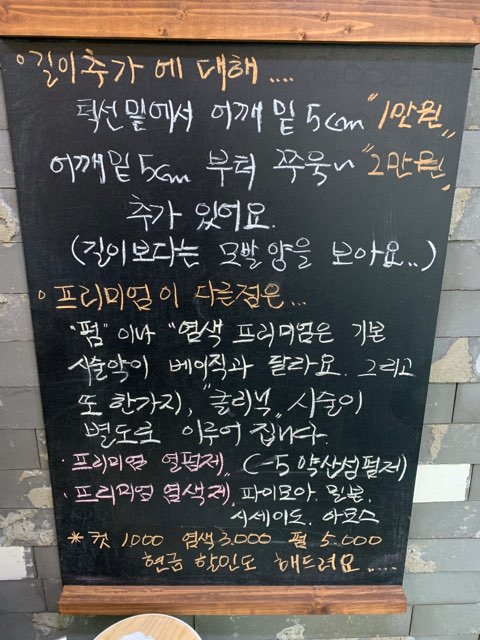 ○길이추가에 대해....
턱선밑에서 어깨 밑 5cm "1만원"
어깨밑 5cm 부터 쭈욱~ "2만원"
추가 있어요.
(길이보다는 모발양을 보아요..)
○프리미엄이 다른점은...
"펌"이나 "염색 프리미엄은 기본
시술약이 베이직과 달라요. 그리고
또 한가지, "클리닉" 시술이
별도로 이루어 집니다.
·프리미엄 열펌제" (-5 약산성펌제)
·프리미엄 염색제, 파이모아. 밀본.
시세이도. 아모스
*컷 1000 염색 3.000 펌 5.000
현금 할인도 해드려요....